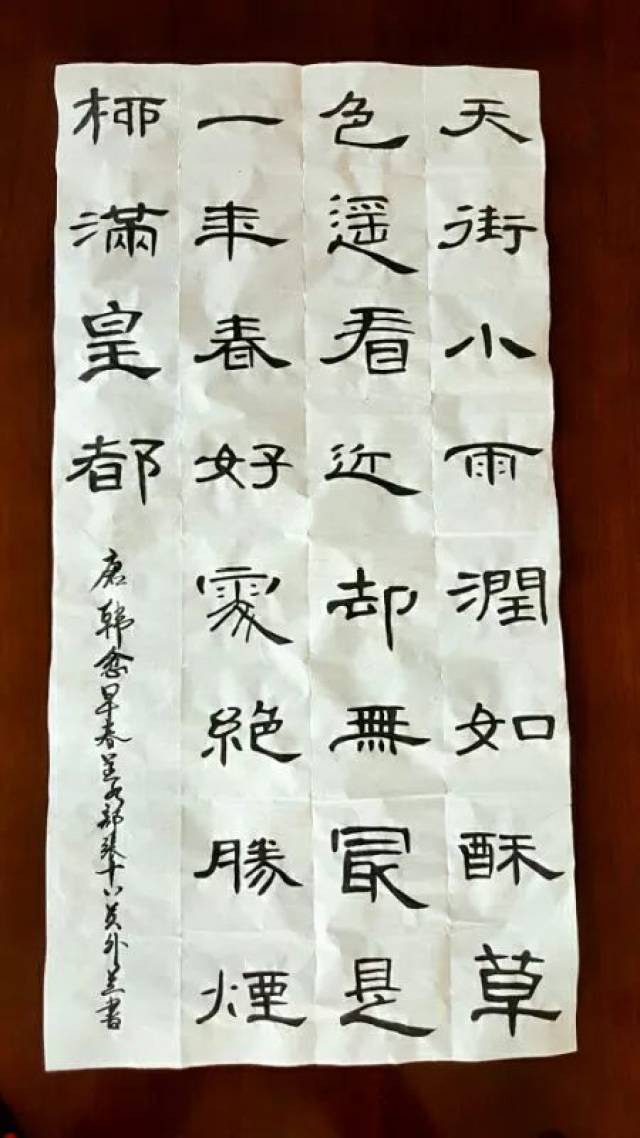 天街小雨潤如酥草
色遥看近却無冣是
一年春好處絶勝煙
柳滿皇都
唐韓愈早春呈水部張十八員外 書